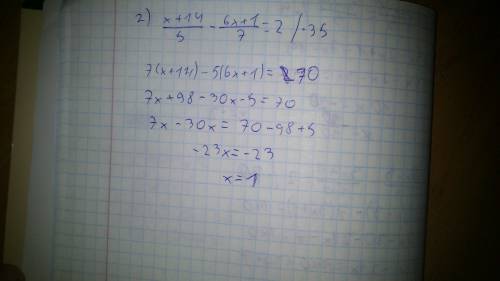 2) (x+14)/5 - (6x+1)/7 = 2 /·35
7(x+14)-5(6x+1)= 70
7x+98-30x-5=70
7x-30x= 70-98+5
-23x=-23
x=1